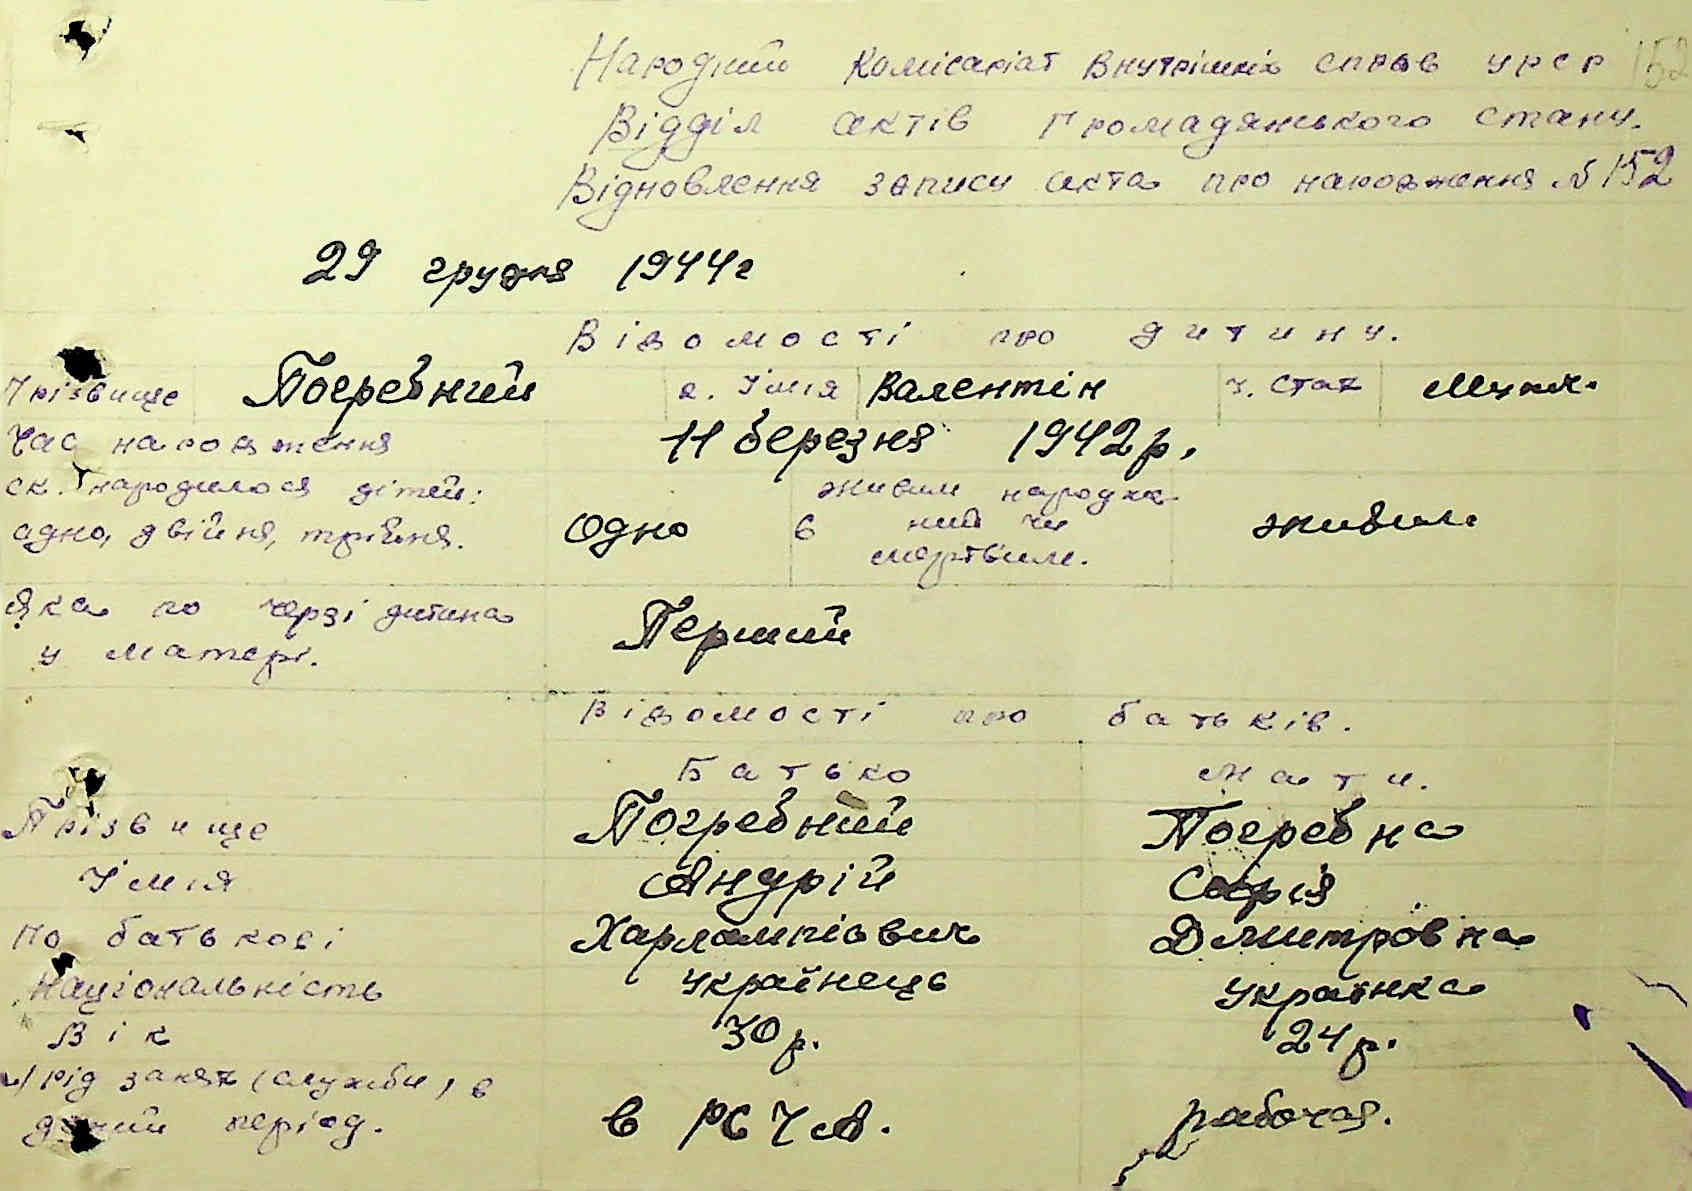 Народний Комісаріат Внутрішніх справ УРСР 152
Відділ актів Громадянського стану.
Відновлення запису акта про народження № 152
29 грудня 1944г
Відомості про дитину.
Прізвище Погребний 2. Імія Валентін 3. Стать Мужч.
Час народження 11 березня 1942р.
ск. народилося дітей:
одно, двійня, трійня. Одно
живим народже
в ний чи
мертвим. живим
Яка по черзі дитина
у матері. Перший
Відомості про батьків.
Батько Мати.
Прізвище Погребний Погребна
Імія Андрій Софія
по батькові Харлампіович Дмитровна
Національність Українець Українка
Вік 30р. 24р.
Рід занять (служби) в
даний період. в РСЧА. рабочая.